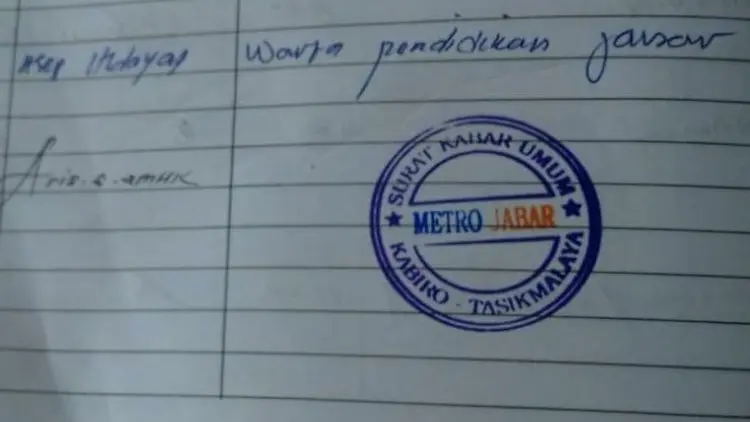 Asep Hidayat Warta pendidikan jabar
Aris.
SURAT KABAR UMUM
METRO JABAR
KABIRO - TASIKMALAYA